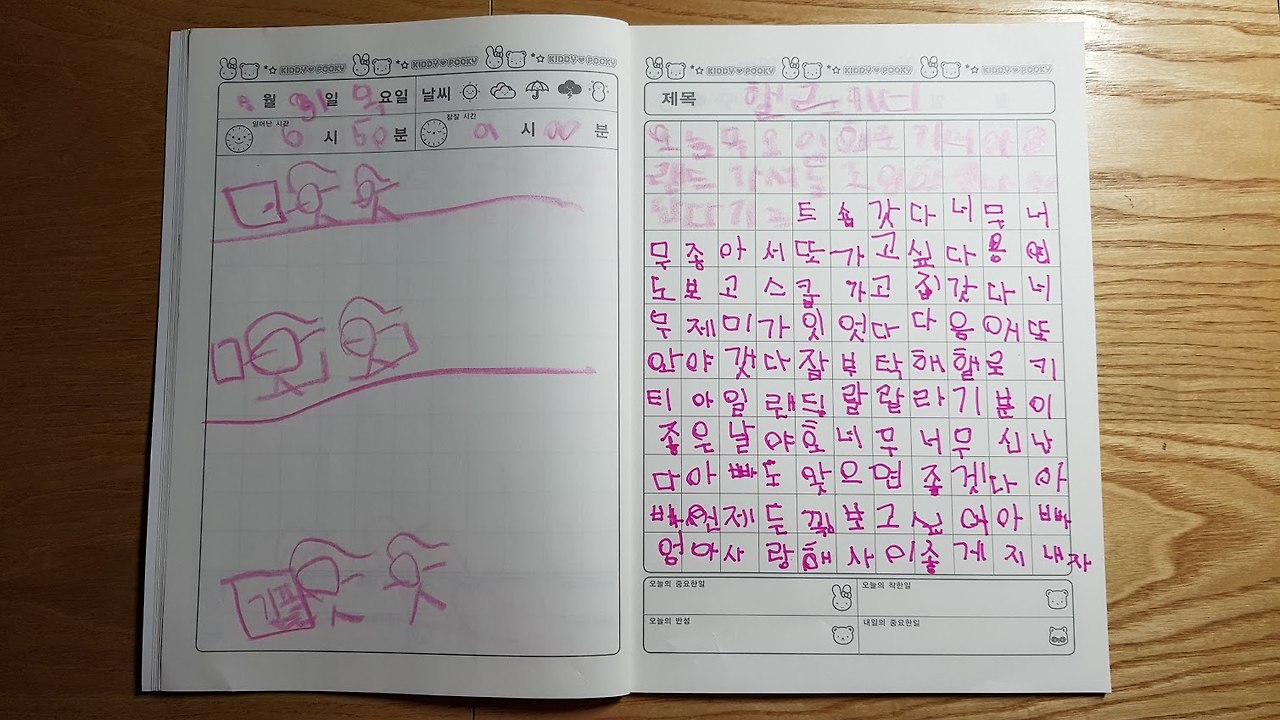 KIDDY♥POOKY KIDDY♥POOKY KIDDY♥POOKY
월 31일 목요일 날씨
일어난 시간 6시 50분 잠잘 시간 시 00분
기프
KIDDY♥POOKY KIDDY♥POOKY KIDDY♥POOKY
제목 헬로키티
오늘 목요일
랜드
트숍갓다너무너
무좋아서또가고싶다용연
도보고스쿱가고집갖다너
무제미가잇엇다다응애또
와야겟다잠부탁해핼로키
티아일랜딍랄랄라기분이
좋은날야호너무너무신난
다아빠도왖으면좋겟다아
빠언제든꼭보고싶어아빠
엉아사랑해사이좋게지내자
오늘의 중요한일 오늘의 착한일
오늘의 반성 내일의 중요한일